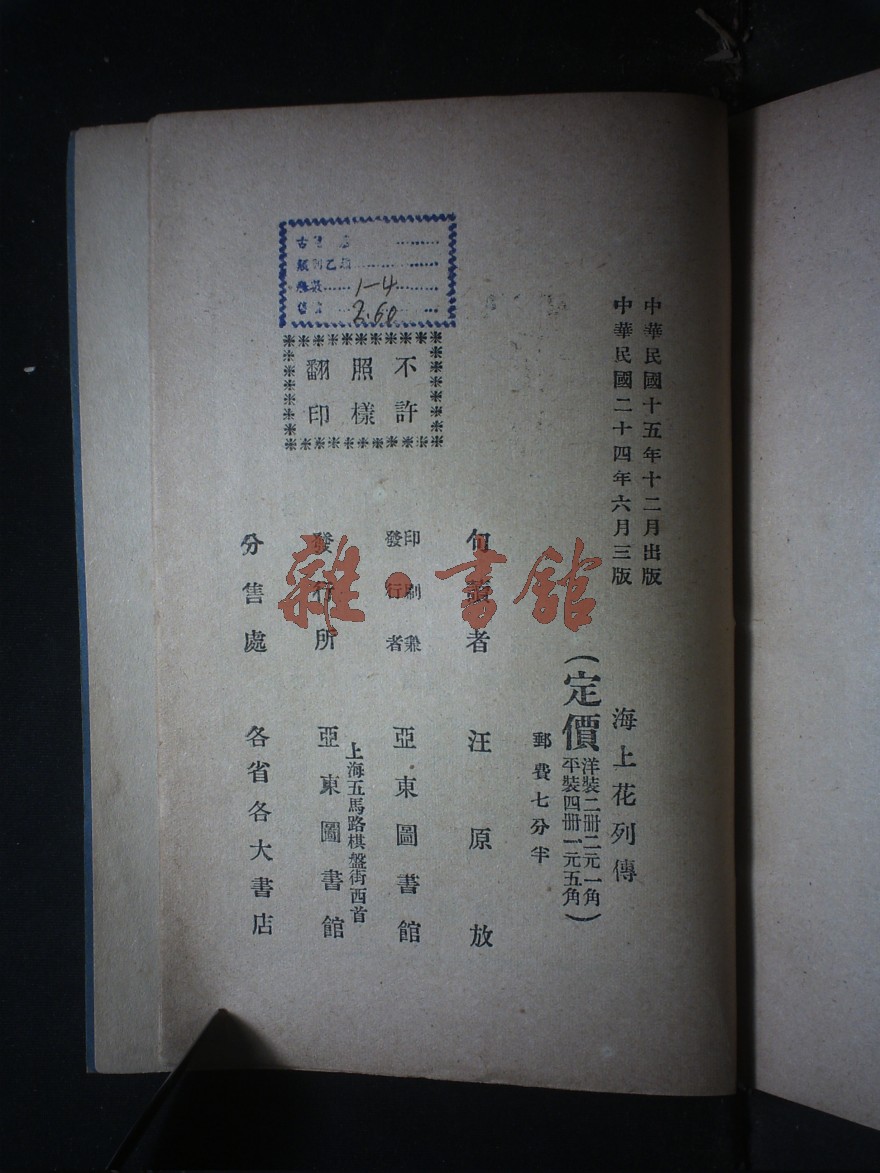 中華民國十五年十二月出版
中華民國二十四年六月三版
海上花列傳
(定價
洋裝二冊二元一角
平裝四冊一元五角)
郵費七分半
句讀者 汪原放
印刷兼
發行者
亞東圖書館
上海五馬路棋盤街西首
發行所 亞東圖書館
分售處 各省各大書店
不許
照樣
翻印
1-4
2.60
雜·書館